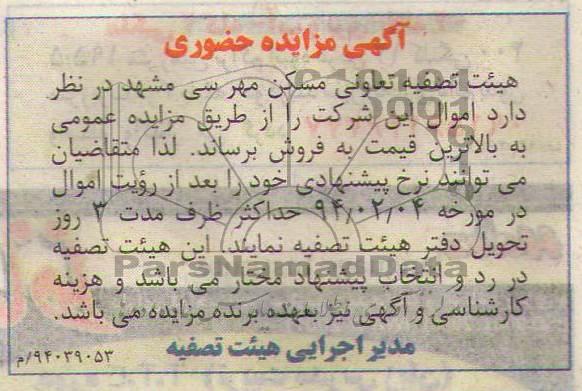 آگهی مزایده حضوری
هیئت تصفیه تعاونی مسکن مهر سی مشهد در نظر
دارد اموال این شرکت را از طریق مزایده عمومی
به بالاترین قیمت به فروش برساند. لذا متقاضیان
می توانند نرخ پیشنهادی خود را بعد از رؤیت اموال
در مورخه ۹۴/۰۲/۰۴ حداکثر ظرف مدت ۳ روز
تحویل دفتر هیئت تصفیه نمایند. این هیئت تصفیه
در رد و انتخاب پیشنهاد مختار می باشد و هزینه
کارشناسی و آگهی نیز بعهده برنده مزایده می باشد.
مدیر اجرایی هیئت تصفیه
۹۴۰۳۹۰۵۳/م
ParsNamadData